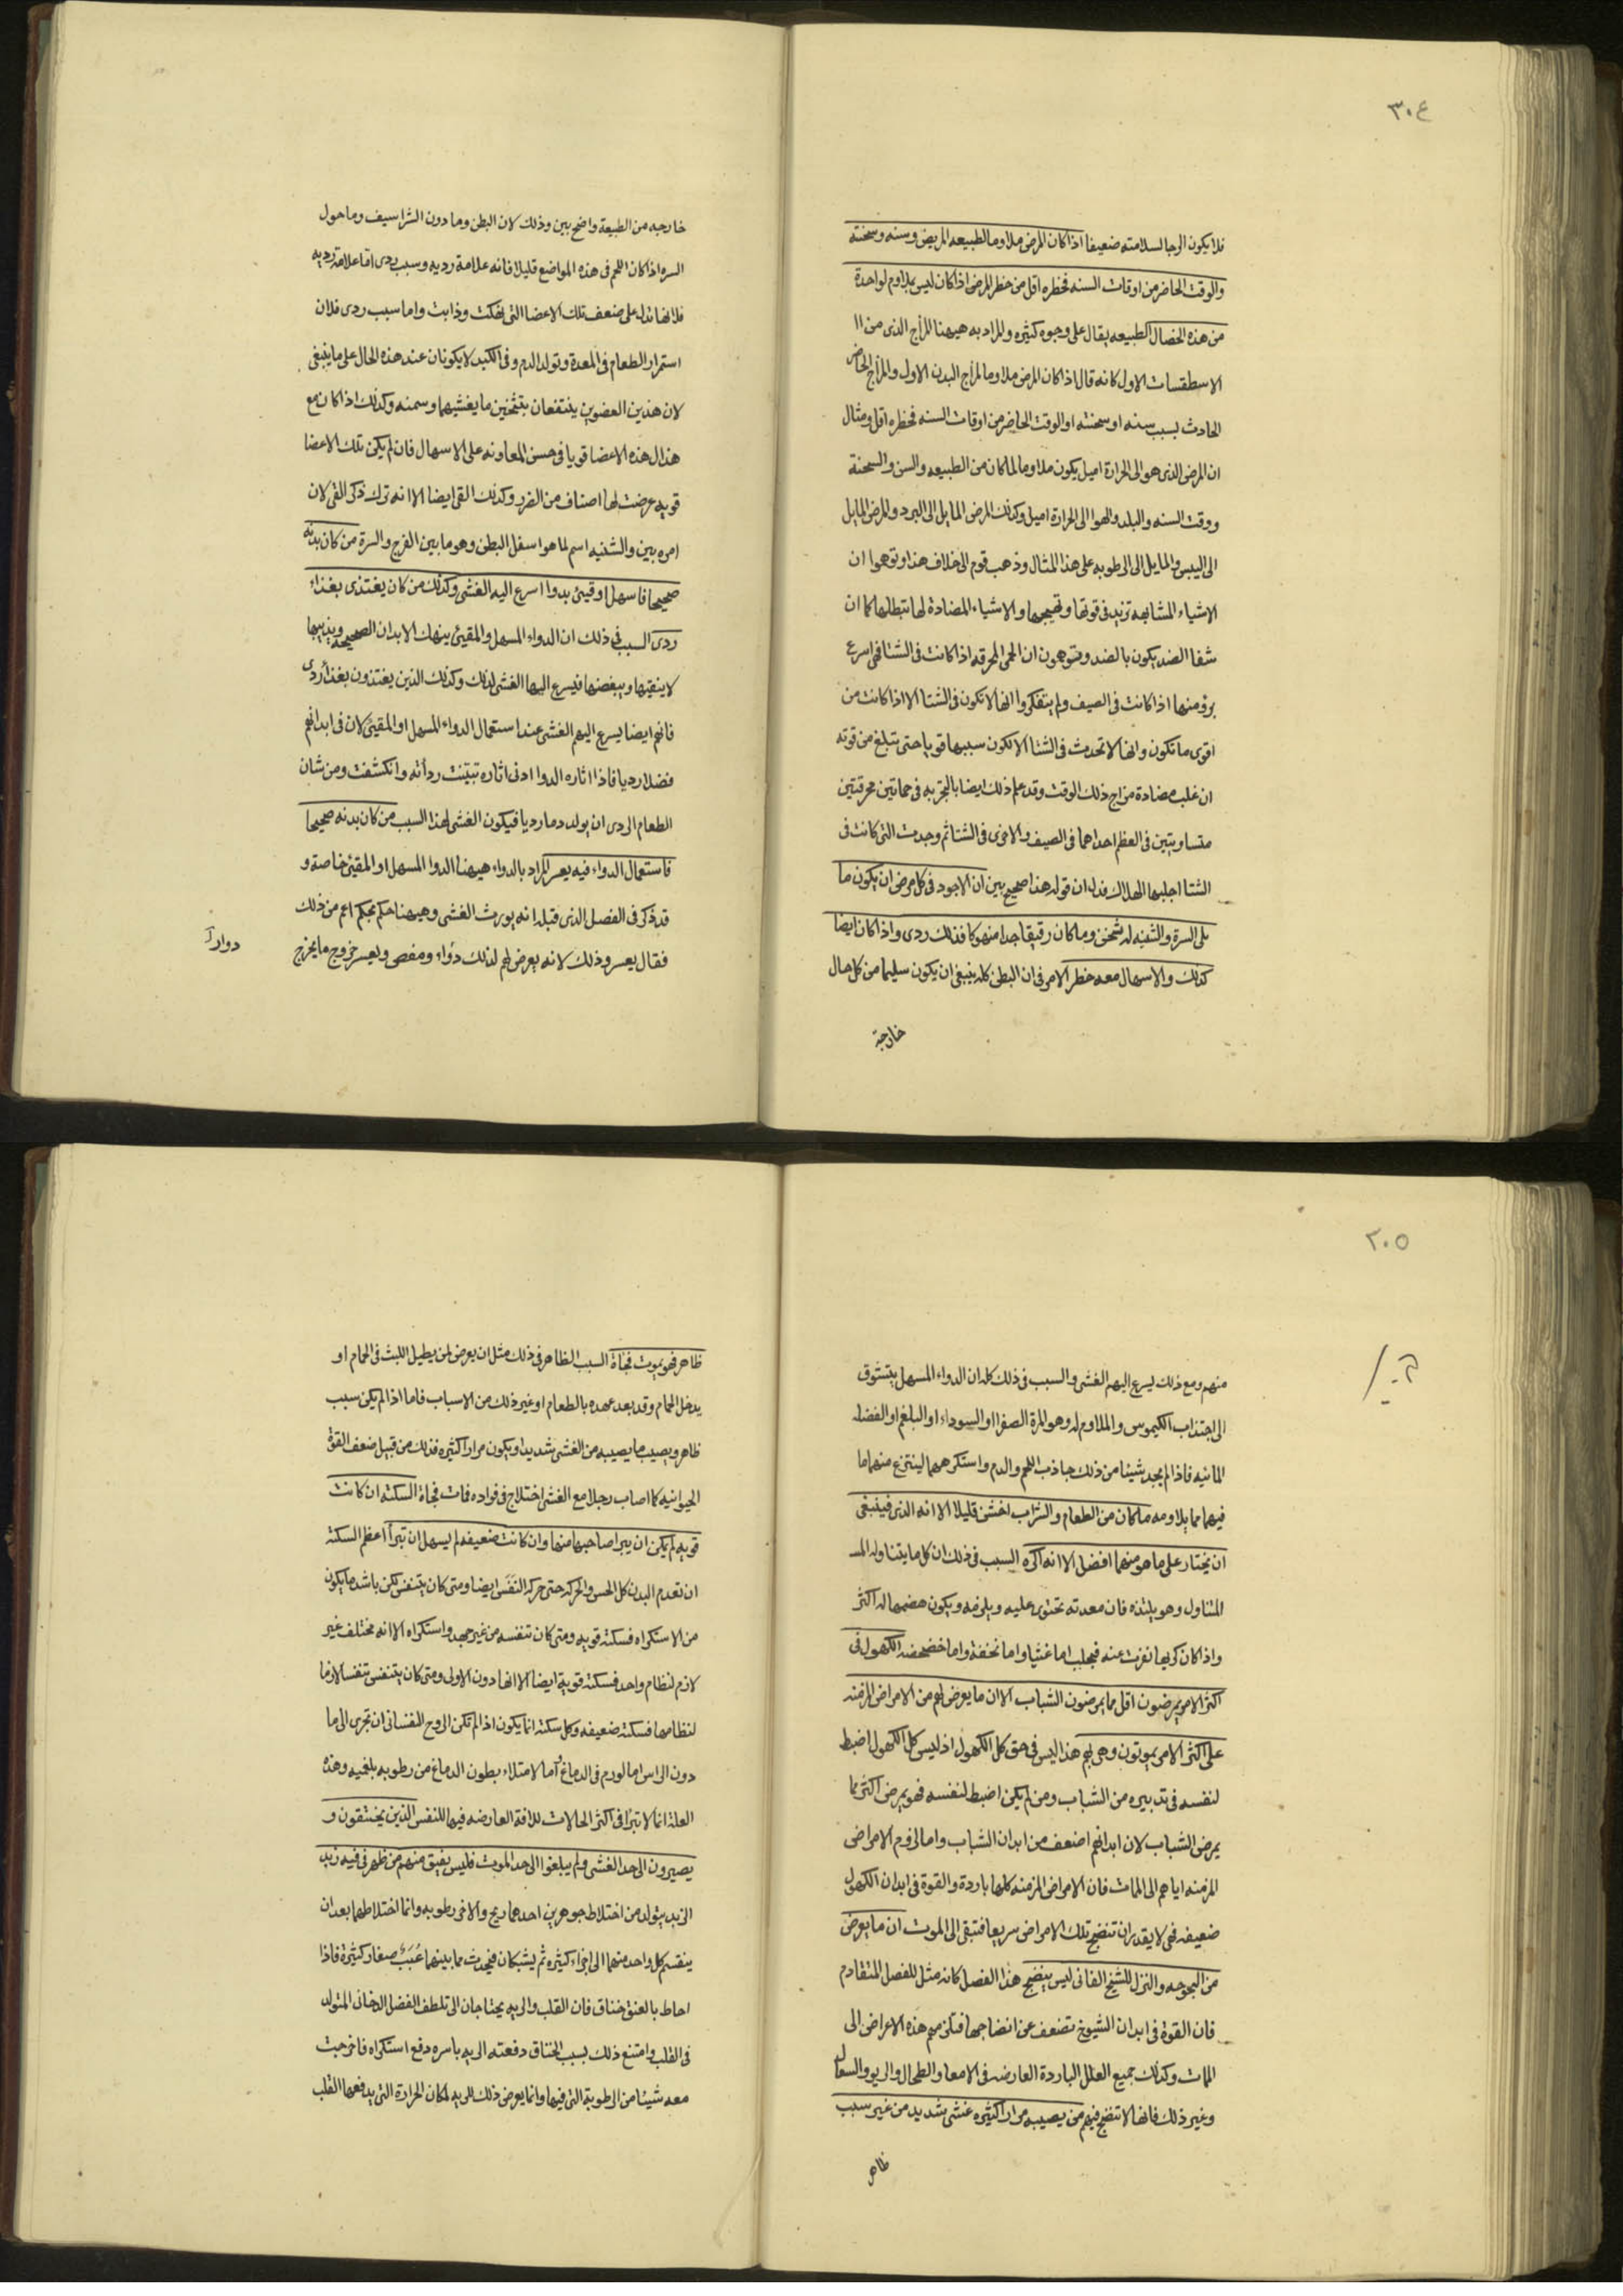 ٣٠٤
فلا يكون الرجا لسلامته ضعيفا اذا كان المرض ملاوما لطبيعه المريض وسنه وسحنته
والوقت الحاضر من اوقات السنه فخطره اقل من خطر المرض اذا كان ليس بملاوم لواحدة
من هذه الخصال الطبيعه يقال على وجوه كثيره والمراد به هيهنا المزاج الذى من ا ا
الاسطقسات الاول كانه قال اذا كان المرض ملاوما لمزاج البدن الاول والمزاج الحاضر
الحادث بسبب سنه او سحنته او الوقت الحاضر من اوقات السنه فخطره اقل ومثال
ان المرض الذى هو الى الحرارة اميل يكون ملاوما لما كان من الطبيعه والسن والسحنة
ووقت السنه والبلد والهوا الى الحرارة اميل وكذلك المرض المايل الى البرد والمرض المايل
الى اليبس والمايل الى الرطوبه على هذا المثال وذهب قوم الى خلاف هذا وتوهموا ان
الاشياء المشابهه تزيد فى قوتها وتهيجها والاشياء المضادة لها تبطلها كما ان
شفا الضد يكون بالضد ويتوهمون ان الحمى المحرقه اذا كانت فى الشتا فهى اسرع
برؤ منها اذا كانت فى الصيف ولم يتفكروا انها لا تكون فى الشتا الا اذا كانت من
اقوى ما تكون وانها لا تحدث فى الشتا الا لكون سببها قويا حتى تبلغ من قوته
ان غلب مضادة مزاج ذلك الوقت وقد علم ذلك ايضا بالتجربه فى حماتين محرقتين
متساويتين فى العظم احداهما فى الصيف والاخرى فى الشتا ثم وجدت التى كانت فى
الشتا اجلبها الهلاك فدل ان قوله هذا صحيح بين ان الاجود فى كل مرض ان يكون ما
يلى السرة والثنه له ثخن وما كان رقيقا جدا منهوكا فذلك ردى واذا كان ايضا
كذلك والاسهال معه خطر الامر فى ان البطن كله ينبغى ان يكون سليما من كل حال
خارجة
خارجه من الطبيعة واضح بين وذلك لان البطن وما دون الشراسيف وما حول
السره اذا كان اللحم فى هذه المواضع قليلا فانه علامة رديه وسبب ردى اما علامة رديه
فلانها تدل على ضعف تلك الاعضا التى نهكت وذابت واما سبب ردى فلان
استمرار الطعام فى المعدة وتولد الدم وفى الكبد لا يكونان عند هذه الحال على ما ينبغى
لان هذين العضوين ينتفعان بتثخين ما يغشيهما وسمنه وكذلك اذا كان مع
هذال هذه الاعضا قويا فى حسن المعاونه على الاسهال فان لم يكن تلك الاعضا
قويه عرضت لها اصناف من الضرر وكذلك القى ايضا الا انه ترك ذكر القى لان
امره بين والثنيه اسم لما هو اسفل البطن وهو ما بين الفرج والسرة من كان بدنه
صحيحا فاسهل او قيئ بدوا اسرع اليه الغشى وكذلك من كان يغتذى بغذاء
ردى السبب فى ذلك ان الدواء المسهل والمقيئ ينهك الابدان الصحيحة ويذيبها
لا ينقيها ويبغضها فيسرع اليها الغشى لذلك وكذلك الذين يغتذون بغذا ردى
فانهم ايضا يسرع اليهم الغشى عند استعمال الدواء المسهل او المقيئ لان فى ابدانهم
فضلا رديا فاذا اثاره الدوا ادنى اثاره تبيّنت رداته وانكشفت ومن شان
الطعام الردى ان يولد دما رديا فيكون الغشى لهذا السبب من كان بدنه صحيحا
فاستعمال الدواء فيه يعسر المراد بالدواء هيهنا الدوا المسهل او المقيئ خاصة و
قد ذكر فى الفصل الذى قبله انه يورث الغشى وهيهنا حكم بحكم اعم من ذلك
فقال يعسر وذلك لانه يعرض لهم لذلك دواء ومغص ويعسر خروج ما يخرج
دوار
٣٠٥
منهم ومع ذلك يسرع اليهم الغشى والسبب فى ذلك كله ان الدواء المسهل يتشوق
الى اجتذاب الكيموس والملاوم له وهو المرة الصفرا او السوداء او البلغم او الفضله
المائيه فاذا لم يجد شيئا من ذلك جاذب اللحم والدم واستكرههما لينتزع منهما ما
فيهما مما يلاومه ما كان من الطعام والشراب اخشن قليلا الا انه الذ فينبغى
ان يختار على ما هو منهما افضل الا انه اكره السبب فى ذلك ان كل ما يتناوله المـ
المتناول وهو يلتذه فان معدته تحتوى عليه ويلزمه ويكون هضمها له اكثر
واذا كان كريها نفرت عنه فيجلب اما غثيا واما نفخة واما خضخضه الكهول فى
اكثر الامر يمرضون اقل مما يمرضون الشباب الا ان ما يعرض لهم من الامراض المزمنه
على اكثر الامر يموتون وهى بهم هذا ليس فى حق كل الكهول اذ ليس كل الكهول اضبط
لنفسه فى تدبيره من الشباب ومن لم يكن اضبط لنفسه فهو يمرض اكثر مما
يمرض الشباب لان ابدانهم اضعف من ابدان الشباب واما لزوم الامراض
المزمنه اياهم الى الممات فان الامراض المزمنه كلها باردة والقوة فى ابدان الكهول
ضعيفه فهى لا يقدر ان تنضج تلك الامراض سريعا فتبقى الى الموت ان ما يعرض
من البحوحه والنزل للشيخ الفانى ليس ينضج هذا الفصل كانه مثل للفصل المتقادم
فان القوة فى ابدان الشيوخ تضعف عن انضاجها فتلزمهم هذه الاعراض الى
الممات وكذلك جميع العلل الباردة العارضه فى الامعا والطحال والريو والسعال
وغير ذلك فانها لا تنضج فيهم من يصيبه مرارا كثيره غشى شديد من غير سبب
ظاهر
ظاهر فهو يموت فجاة السبب الظاهر فى ذلك مثل ان يعرض لمن يطيل اللبث فى الحمام او
يدخل الحمام وقد بعد عهده بالطعام او غير ذلك من الاسباب فاما اذا لم يكن سبب
ظاهر ويصيب ما يصيبه من الغشى شديدا ويكون مرارا كثيره فذلك من قبيل ضعف القوة
الحيوانيه كما اصاب رجلا مع الغشى اختلاج فى فواده فمات فجاة السكته ان كانت
قويه لم يكن ان يبرا صاحبها منها وان كانت ضعيفه لم يسهل ان تبرأ اعظم السكته
ان تعدم البدن كل الحس والحركه حتى حركه النفَس ايضا ومتى كان يتنفس لكن باشد ما يكون
من الاستكراه فسكته قويه ومتى كان تنفسه من غير جهد واستكراه الا انه مختلف غير
لازم لنظام واحد فسكته قوية ايضا الا انها دون الاولى ومتى كان يتنفس تنفسا لازما
لنظامها فسكته ضعيفه وكل سكته انما يكون اذا لم تكن الروح النفسانى ان تجرى الى ما
دون الراس اما لورم فى الدماغ واما لامتلاء بطون الدماغ من رطوبه بلغميه وهذه
العلة انما لا تبرأ فى اكثر الحالات للافة العارضه فيها للنفس الذين يختنقون و
يصيرون الى حد الغشى ولم يبلغوا الى حد الموت فليس يفيق منهم من ظهر فى فيه زبد
الزبد يتولد من اختلاط جوهرين احدهما ريح والاخر رطوبه وانما اختلاطهما بعد ان
ينقسم كل واحد منهما الى اجزاء كثيره ثم يشتبكان فيحدث مما بينهما عُبَبٌ صغار كثيرة فاذا
احاط بالعنق خناق فان القلب والريه يحتاجان الى تلطف الفضل الدخانى المتولد
فى القلب وامتنع ذلك بسبب الخناق دفعته الريه باسره دفع استكراه فاخرجت
معه شيئا من الرطوبة التى فيها وانما يعرض ذلك للريه لمكان الحرارة التى يدفعها القلب